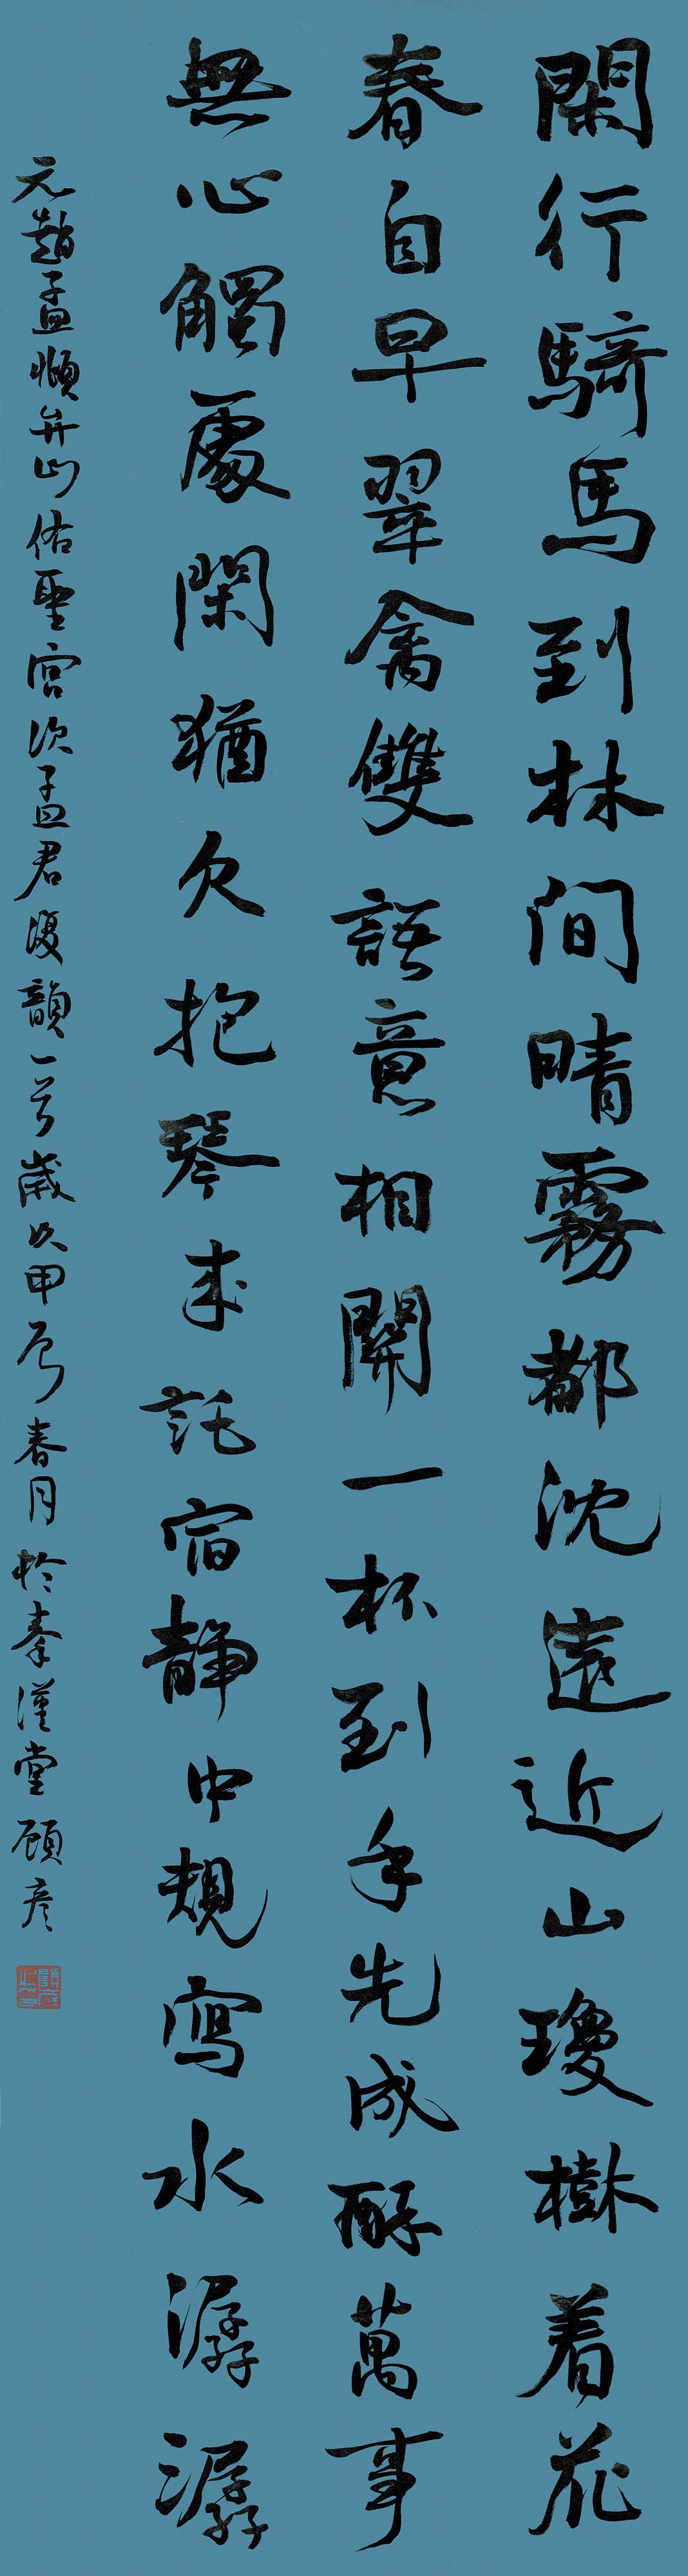 閑行騎馬到林間晴霧都沈遠近山瓊樹着花
春自早翠禽雙語意相關一杯到手先成酥萬事
無心觸處閑猶欠抱琴來託宿静中規寫水潺潺
元趙孟頫弁山佑聖宮次孟君復韻一首歲次甲辰春月於秦漢堂顾彦